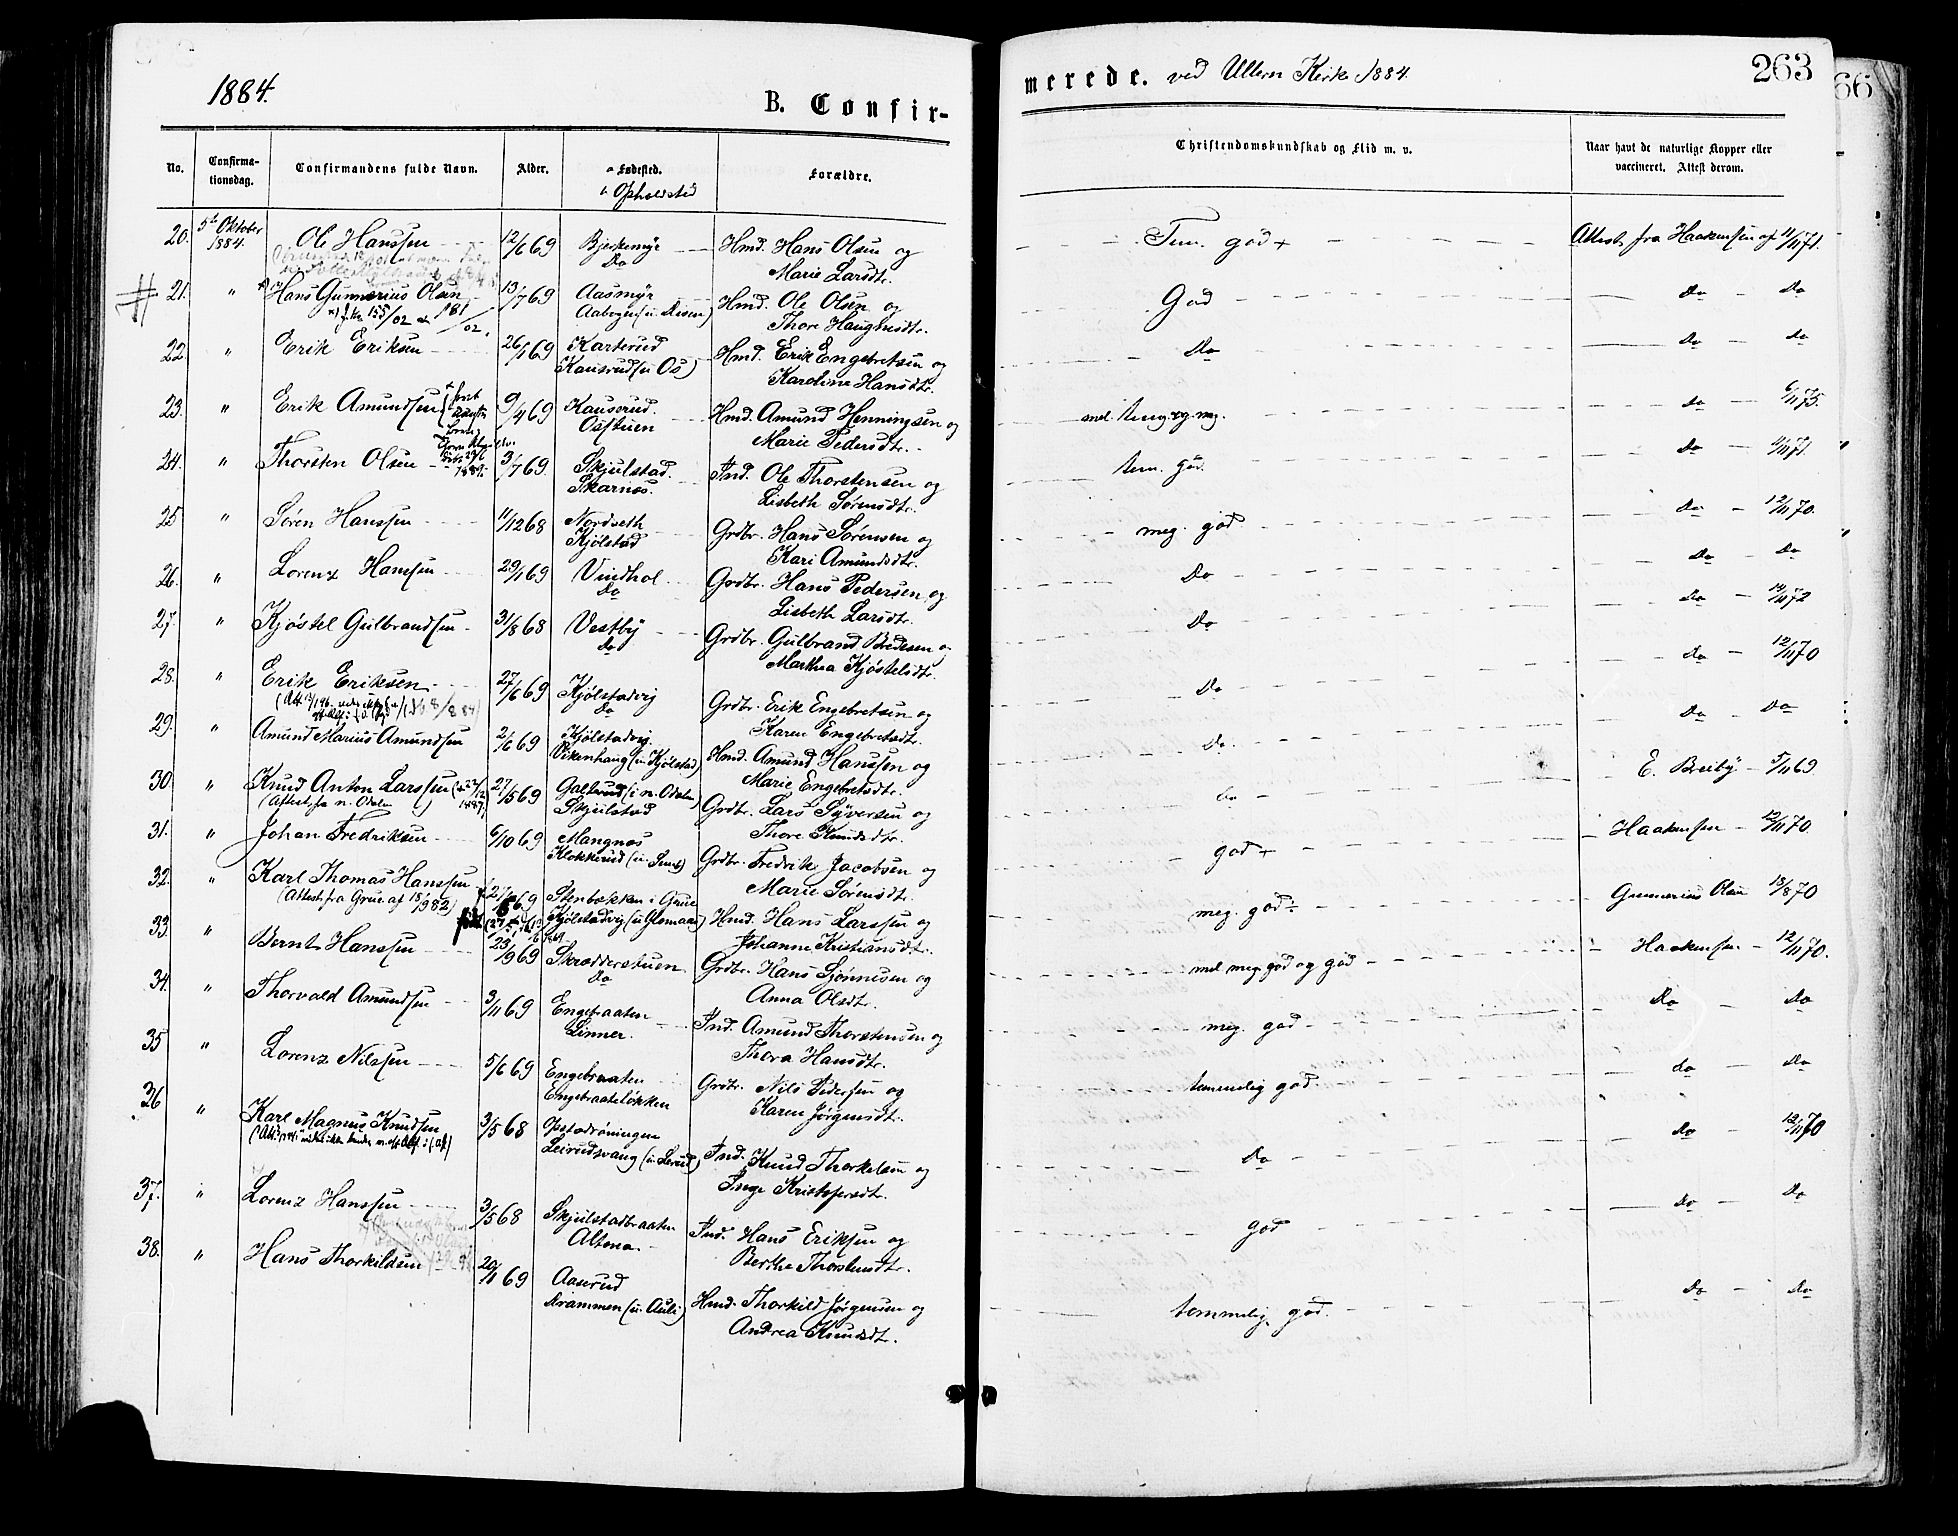 1884.
B. Confir-
merede. ved Ullern Kirke 1884.
263
66
No. Confirma-tionsdag. Confirmandens fulde Navn. Alder. a Fødested. b Opholdsted Forældre. Christendomskundskab og Flid m. v. Naar havt de naturlige Kopper eller vaccineret. Attest derom.
20. 5te Oktober 1884. Ole Hanssen 12/6 69 Bjerkemyr Hmd. Hans Olsen og Tem. god + Attest fra Haakensen af 11/11 71.
Do Marie Larsdt.
21. " Hans Gunnerius Olsen 13/7 69 Aasmyr Hmd. Ole Olsen og God Do Do
Aabogen (u. Risen) Thore Haugensdtr.
22. " Erik Eriksen 26/1 69 Karterud Hmd. Erik Engebretsen og Do Do Do
Kausrud (u Os) Karoline Hansdtr.
23. " Erik Amundsen 9/4 69 Kausrud. Hmd. Amund Henningsen og mel. temg. og mg. Do 6/11 75.
Osstuen Marie Pedersdtr.
24. " Thorsten Olsen 3/7 69 Skjulstad. Ind. Ole Thorstensen og tem. god. Do 11/11 71.
Skarnes. Lisbeth Sørensdtr.
25 " Søren Hanssen 11/12 68 Nordseth Grdbr. Hans Sørensen og meg. god Do 12/11 70.
Kjølstad Kari Amundsdtr.
26. " Lorenz Hanssen 29/1 69 Vindhol Grdbr. Hans Pedersen og Do Do Do
Do Lisbeth Larsdt.
27. " Kjøstel Gulbrandsen 31/8 68 Vestby Grdbr. Gulbrand Bredesen o Do Do 11/11 72
Do Marthea Kjøstelsdtr.
28. " Erik Eriksen 27/6 69 Kjølstadvig Grdbr. Erik Engebretsen og Do Do 12/11 70
Do Karen Engebretsdtr.
29. " Amund Marius Amundsen 2/6 69 Kjølstadvig. Hmd. Amund Hanssen og Do. Do Do
Vikenhaug (u. Kjølstad) Marie Engebretsdtr.
30. " Knud Anton Larssen 27/5 69 Galterud (i n. Odalen) Grdbr. Lars Syversen og Do E. Breiby 5/11 69
(Attest fra n. Odalen 1887) Skjulstad Thore Knudsdtr.
31. " Johan Fredriksen 6/10 69 Mangnæs Grdbr. Fredrik Jacobsen og god + Haakensen 12/11 70.
Klokkerud (u. Sund) Marie Sørensdt.
32. " Karl Thomas Hanssen 27/5 69 Stenbækken i Grue Hmd. Hans Larssen og meg. god Gunnerius Olsen 18/8 70
(Attest fra Grue af 18/9 82) Kjølstadvig (u Glomaas) Johanne Kristiansdt.
33. " Bernt Hanssen 23/9 69 Skrædderstuen Grdbr. Hans Sjønnesen og mel meg. god og god Haakensen 12/11 70.
Do Anna Olsdt.
34. " Thorvald Amundsen 3/11 69 Engebraaten Ind. Amund Thorstensen og meg. god Do Do
Linner. Thora Hansdtr.
35 " Lorenz Nilssen 5/6 69 Engebraaten Grdbr. Nils Pedersen og temmelig god. Do Do
Engebraateløkken Karen Jørgensdt.
36 " Karl Magnus Knudsen 3/5 68 Opstadrøningen Ind. Knud Thorkelsen og Do Do 12/11 70
Leirudsvang (u. Lerud) Inge Kristofersdt.
37. " Lorenz Hanssen 3/5 68 Skjulstadbraaten Ind. Hans Eriksen og god Do Do
Altona. Berthe Thorstensdtr.
38. " Hans Thorkildsen 20/11 69 Aaserud Hmd. Thorkild Jørgensen og temmelig god. Do Do
Drammen (u. Auli) Andrea Knudsdtr.